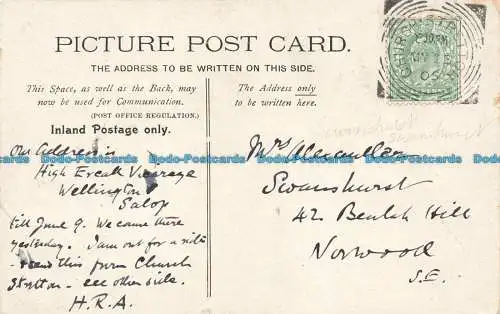 PICTURE POST CARD.
THE ADDRESS TO BE WRITTEN ON THIS SIDE.
This Space, as well as the Back, may
now be used for Communication.
(POST OFFICE REGULATION.)
Inland Postage only.
The Address only
to be written here.
Our Address is
High Ercall Vicarage
Wellington
Salop
till June 9. We came there
yesterday. I am out for a ride
& send this from Church
Stretton - see other side.
H.R.A.
Mrs
Swanshurst
42 Beulah Hill
Norwood
S.E.
CHURCH STRETTON
MY
05
Postcards-Docks